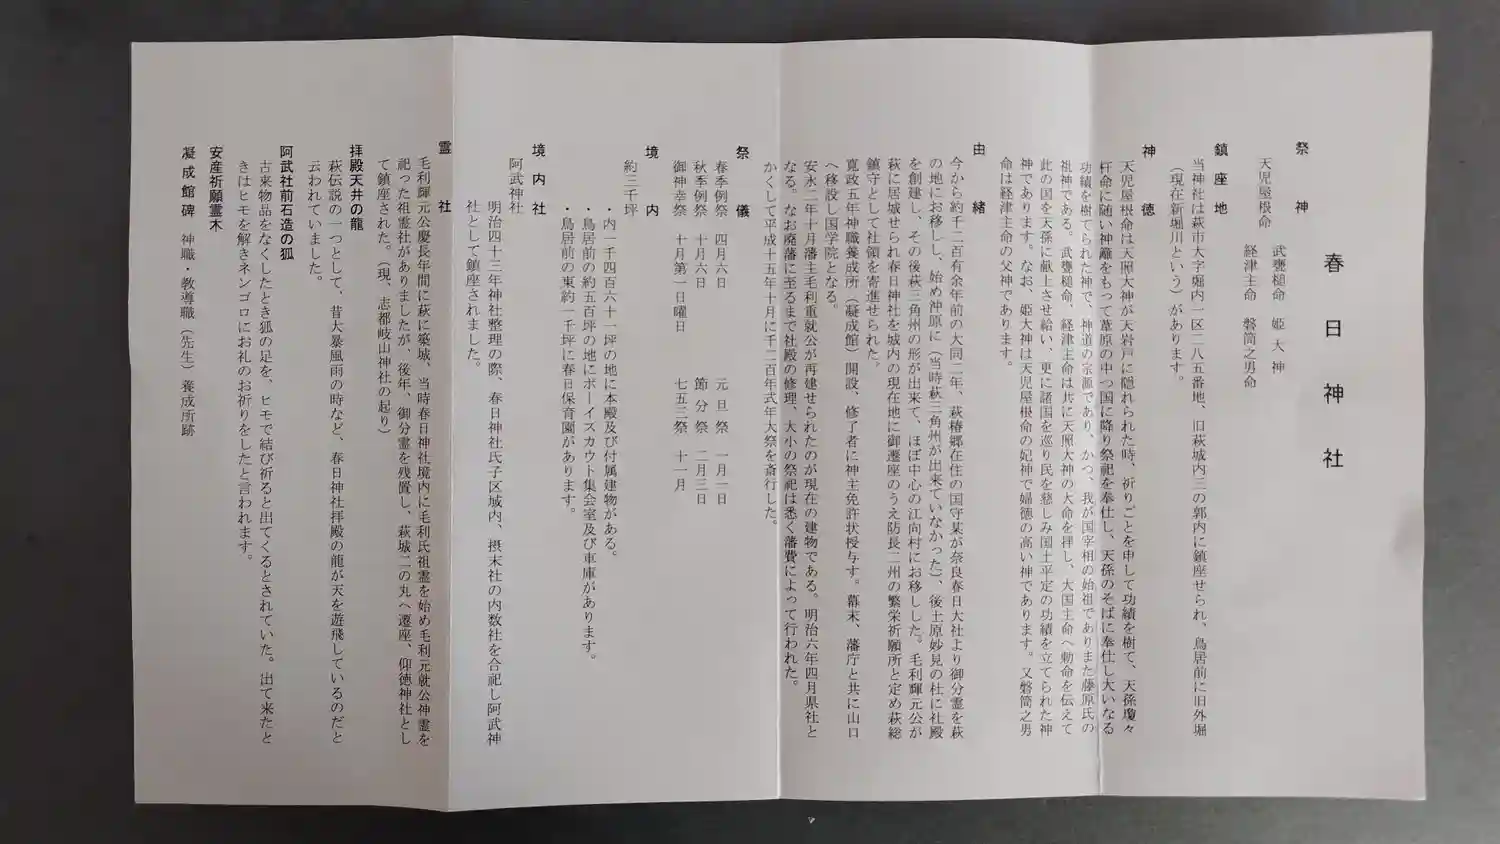 春日神社
祭神
天児屋根命
武甕槌命 姫大神
経津主命 磐筒之男命
鎮座地
当神社は萩市大字堀内一区二八五番地、旧萩城内三の郭内に鎮座せられ、鳥居前に旧外堀
（現在新堀川という）があります。
神徳
天児屋根命は天照大神が天岩戸に隠れられた時、祈りごとを申して功績を樹て、天孫瓊々
杵命に随い神籬をもつて葦原の中つ国に降り祭祀を奉仕し、天孫のそばに奉仕し大いなる
功績を樹てられた神で、神道の宗源であり、かつ、我が国宰相の始祖でありまた藤原氏の
祖神である。武甕槌命、経津主命は共に天照大神の大命を拝し、大国主命へ勅命を伝えて
此の国を天孫に献上させ給い、更に諸国を巡り民を慈しみ国土平定の功績を立てられた神
神であります。なお、姫大神は天児屋根命の妃神で婦徳の高い神であります。又磐筒之男
命は経津主命の父神であります。
由緒
今から約千二百有余年前の大同二年、萩椿郷在住の国守某が奈良春日大社より御分霊を萩
の地にお移しし、始め沖原に（当時萩三角州が出来ていなかった）、後土原妙見の社に社殿
を創建し、その後萩三角州の形が出来て、ほぼ中心の江向村にお移しした。毛利輝元公が
萩に居城せられ春日神社を城内の現在地に御遷座のうえ防長二州の繁栄祈願所と定め萩総
鎮守として社領を寄進せられた。
寛政五年神職養成所（凝成館）開設、修了者に神主免許状授与す。幕末、藩庁と共に山口
へ移設し国学院となる。
安永二年十月藩主毛利重就公が再建せられたのが現在の建物である。明治六年四月県社と
なる。なお廃藩に至るまで社殿の修理、大小の祭祀は悉く藩費によって行われた。
かくして平成十五年十月に千二百年式年大祭を斎行した。
祭儀
春季例祭 四月六日 元旦祭 一月一日
秋季例祭 十月六日 節分祭 二月三日
御神幸祭 十月第一日曜日 七五三祭 十一月
境内
約三千坪
・内一千四百六十一坪の地に本殿及び付属建物がある。
・鳥居前の約五百坪の地にボーイスカウト集会室及び車庫があります。
・鳥居前の東約一千坪に春日保育園があります。
境内社
阿武神社
明治四十三年神社整理の際、春日神社氏子区城内、摂末社の内数社を合祀し阿武神
社として鎮座されました。
霊社
毛利輝元公慶長年間に萩に築城、当時春日神社境内に毛利氏祖霊を始め毛利元就公神霊を
祀った祖霊社がありましたが、後年、御分霊を残置し、萩城二の丸へ遷座、仰徳神社とし
て鎮座された。（現、志都岐山神社の起り）
拝殿天井の龍
萩伝説の一つとして、昔大暴風雨の時など、春日神社拝殿の龍が天を遊飛しているのだと
云われていました。
阿武社前石造の狐
古来物品をなくしたとき狐の足を、ヒモで結び祈ると出てくるとされていた。出て来たと
きはヒモを解きネンゴロにお礼のお祈りをしたと言われます。
安産祈願霊木
凝成館碑 神職・教導職（先生）養成所跡